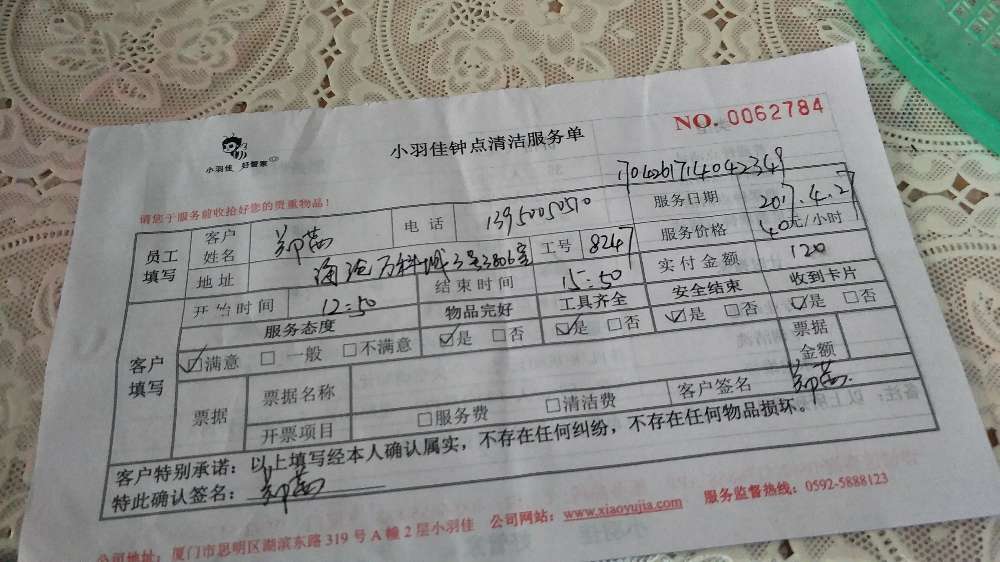 小羽佳 好管家
小羽佳钟点清洁服务单
NO. 0062784
1704261714042349
请您于服务前收拾好您的贵重物品！
员工填写 客户姓名 郑茜 电话 13950050510 服务日期 2017.4.27
地址 海沧万科城3号3806室 工号 8247 服务价格 40元/小时
开始时间 12:50 结束时间 15:50 实付金额 120
客户填写 服务态度 物品完好 工具齐全 安全结束 收到卡片
☑满意 □一般 □不满意 ☑是 □否 ☑是 □否 ☑是 □否 ☑是 □否
票据 票据名称 票据金额
开票项目 □服务费 □清洁费 客户签名 郑茜
客户特别承诺：以上填写经本人确认属实，不存在任何纠纷，不存在任何物品损坏。
特此确认签名：郑茜
公司地址：厦门市思明区湖滨东路319号A幢2层小羽佳 公司网站：www.xiaoyujia.com 服务监督热线：0592-5888123